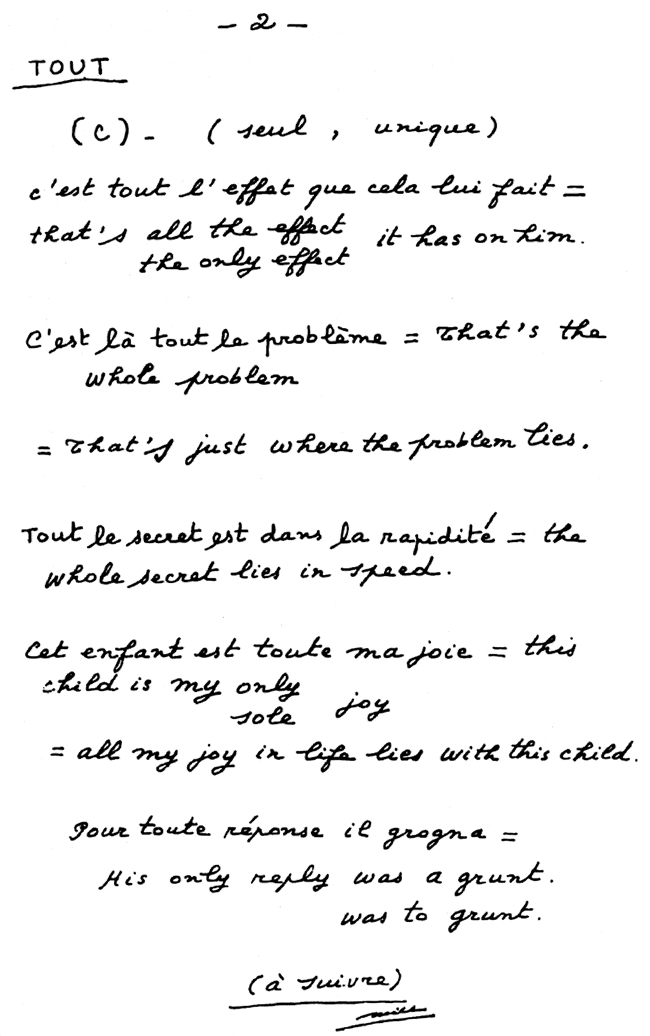 - 2 -
TOUT
(c) - (seul, unique)
c'est tout l'effet que cela lui fait =
that's all the effect it has on him.
the only effect
C'est là tout le problème = That's the
whole problem
= That's just where the problem lies.
Tout le secret est dans la rapidité = the
whole secret lies in speed.
Cet enfant est toute ma joie = this
child is my only joy
sole
= all my joy in life lies with this child.
Pour toute réponse il grogna =
His only reply was a grunt.
was to grunt.
(à suivre)